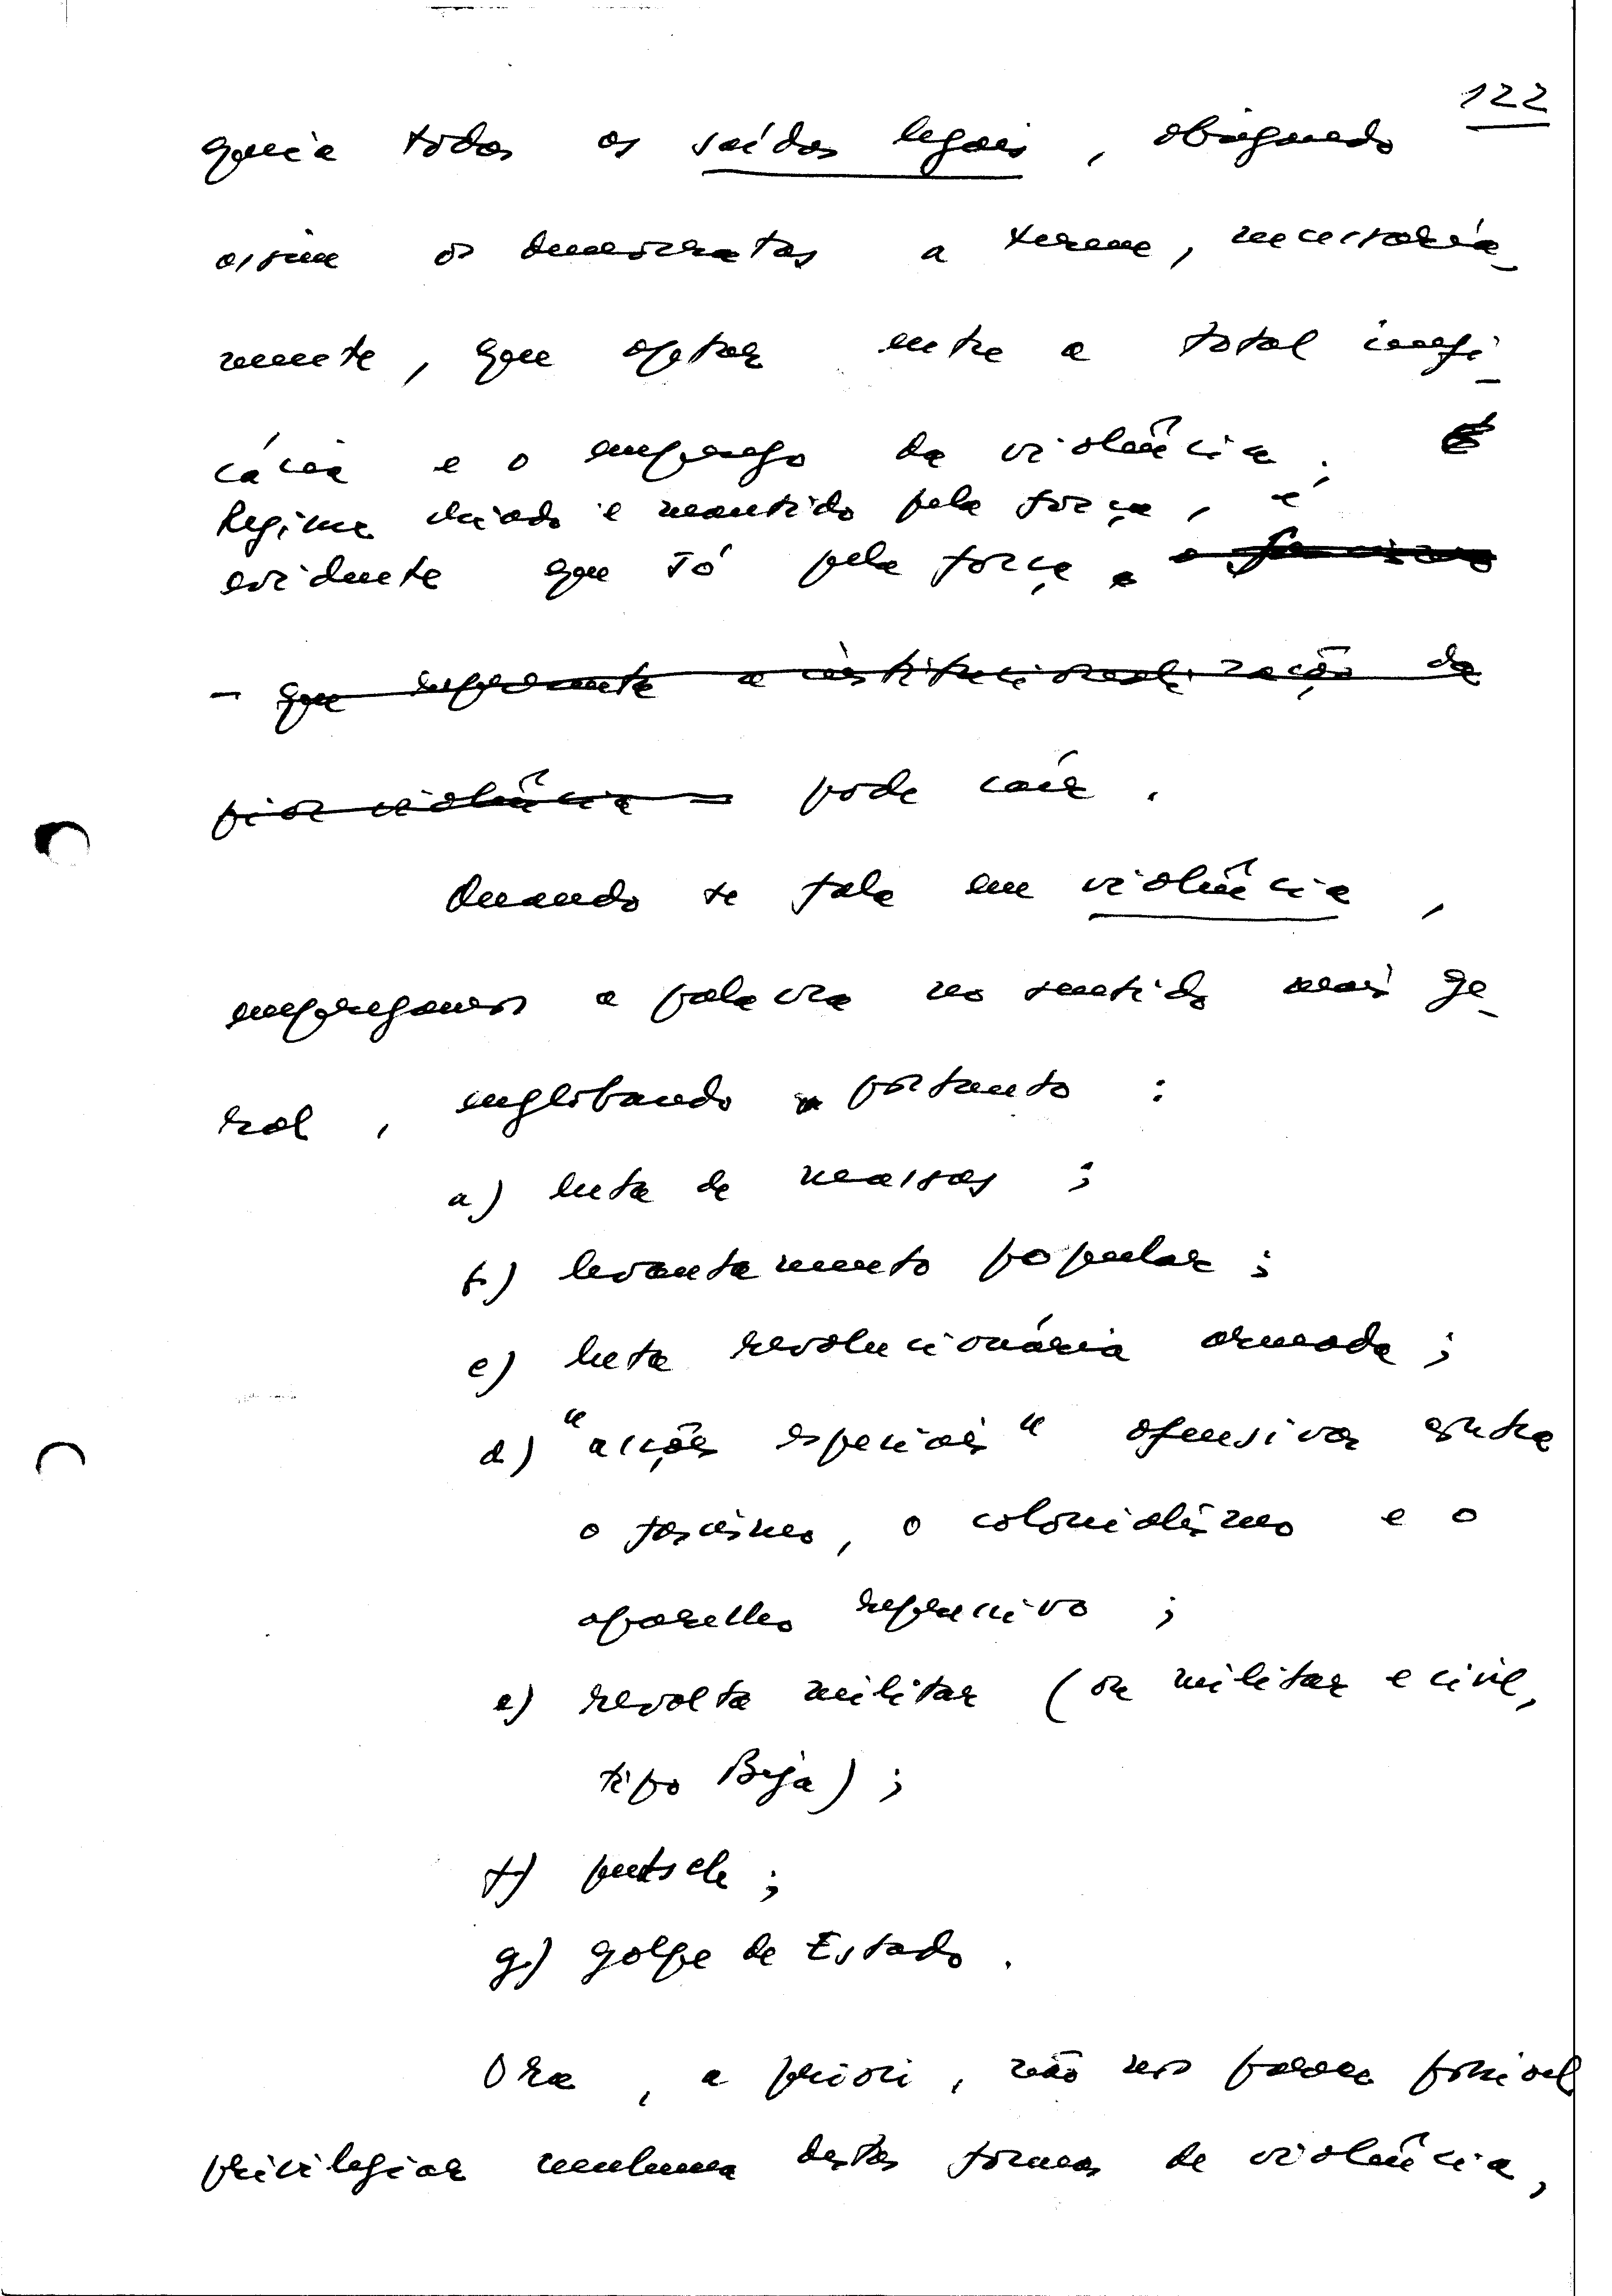 122
queia todas as saídas legais, obrigando
assim os democratas a terem, necessària-
mente, que optar entre a total inefi-
cácia e o emprego da violência.
Regime criado e mantido pela força, é
evidente que só pela força o fascismo
- que representa a institucionalização da
pior violência — pode cair.
Quando se fala em violência,
empregamos a palavra no sentido mais ge-
ral, englobando portanto:
a) luta de massas;
b) levantamento popular;
c) luta revolucionária armada;
d) "acções especiais" ofensivas contra
o fascismo, o colonialismo e o
aparelho repressivo;
e) revolta militar (ou militar e civil,
tipo Beja);
f) putsch;
g) golpe de Estado.
Ora, a priori, não nos parece possível
privilegiar nenhuma destas formas de violência,